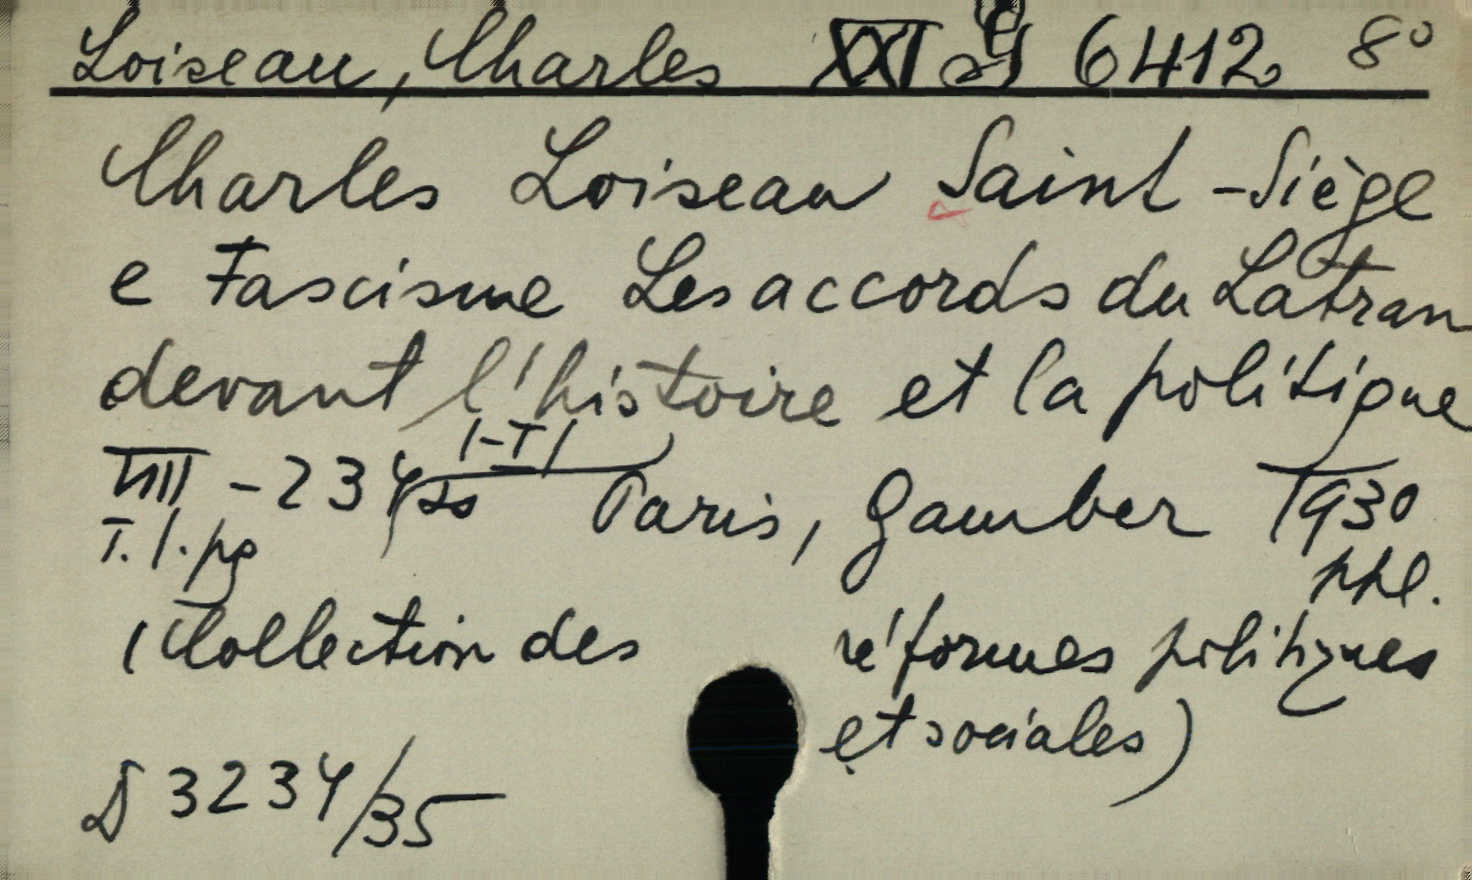 Loiseau, Charles XXI J 6412 8°
Charles Loiseau Saint-Siège
e Fascisme Les accords du Latran
devant l'histoire et la politique
1-T1
VIII-234 ss Paris, Gamber 1930
T.1.pg ppl.
(Collection des réformes politiques
et sociales)
D 3234/35